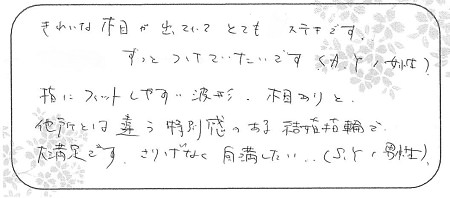 きれいな木目が出ていて とても ステキです。
ずっと つけていたいです (A.Y／女性)
指にフィットしやすい波形、木目ありと、
他所とは違う特別感のある結婚指輪で
大満足です。さりげなく自慢したい… (S.Y／男性)